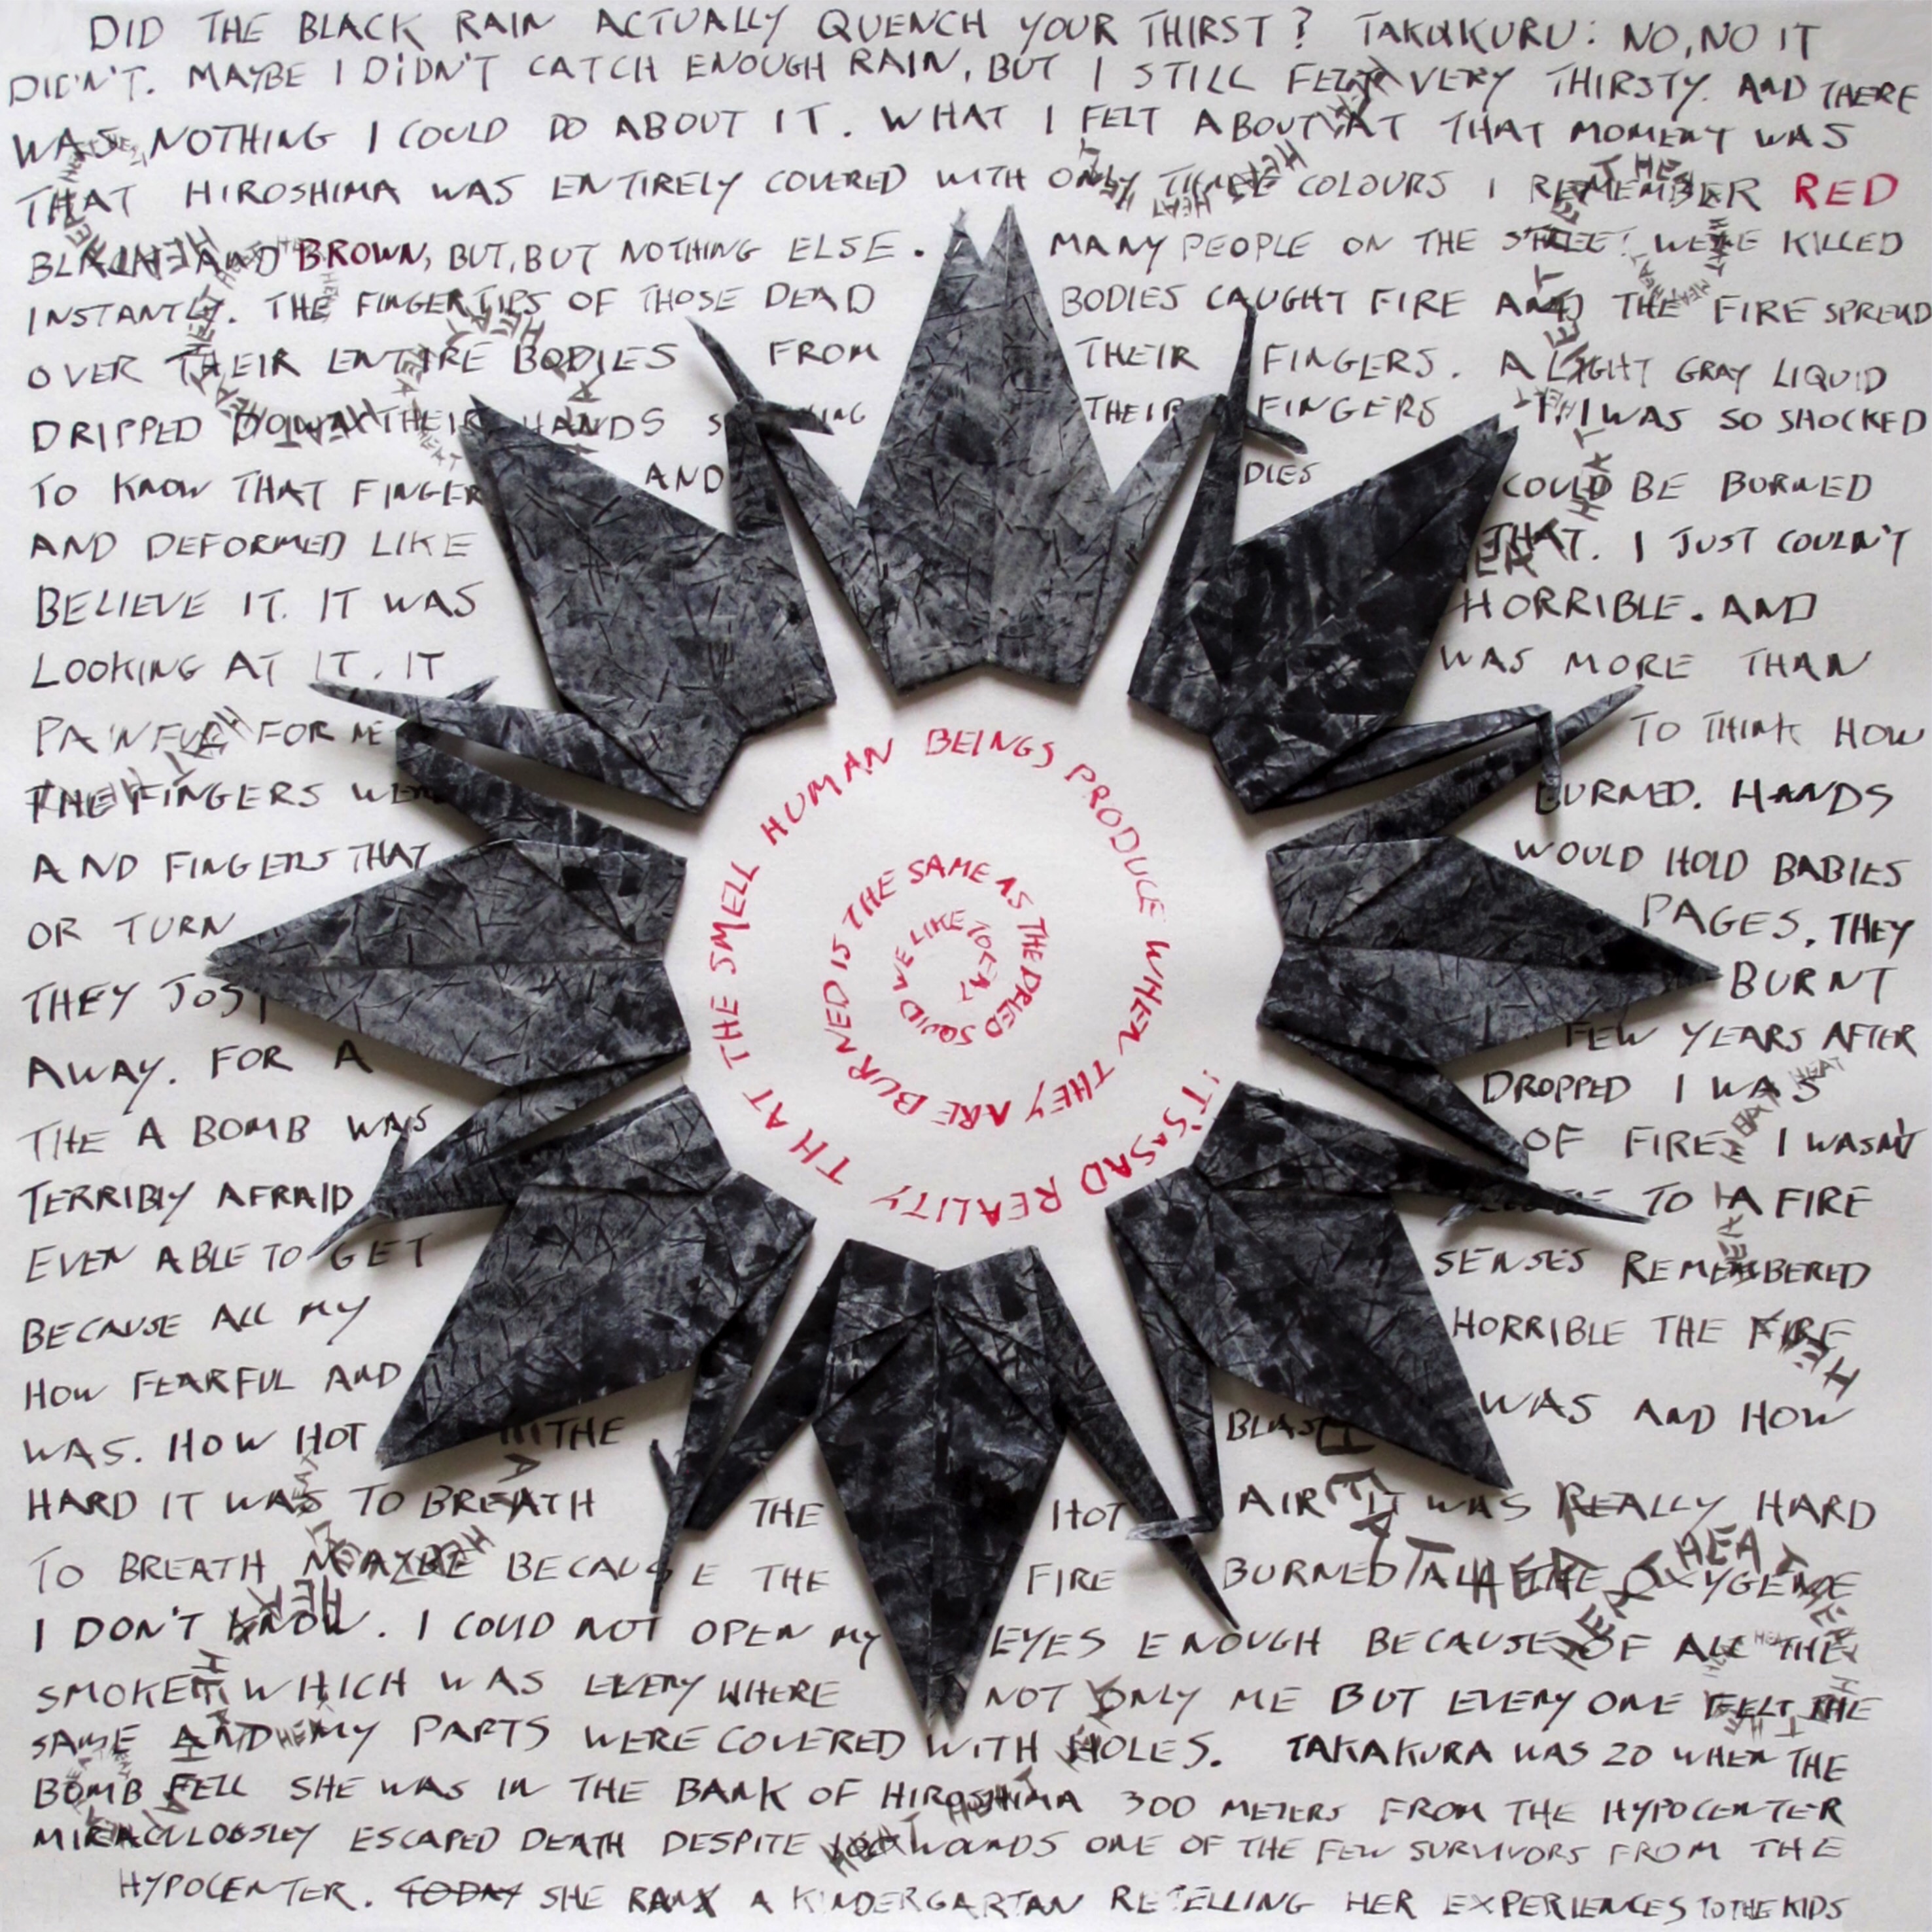 DID THE BLACK RAIN ACTUALLY QUENCH YOUR THIRST? TAKAKURU: NO, NO IT
DIDN'T. MAYBE I DIDN'T CATCH ENOUGH RAIN, BUT I STILL FELT VERY THIRSTY. AND THERE
WAS NOTHING I COULD DO ABOUT IT. WHAT I FELT ABOUT AT THAT MOMENT WAS
THAT HIROSHIMA WAS ENTIRELY COVERED WITH ONLY THREE COLOURS I REMEMBER RED
BLACK AND BROWN, BUT, BUT NOTHING ELSE. MANY PEOPLE ON THE STREET WERE KILLED
INSTANTLY. THE FINGERTIPS OF THOSE DEAD BODIES CAUGHT FIRE AND THE FIRE SPREAD
OVER THEIR ENTIRE BODIES FROM THEIR FINGERS. A LIGHT GRAY LIQUID
DRIPPED DOWN THEIR HANDS THEIR FINGERS I WAS SO SHOCKED
TO KNOW THAT FINGER AND DIES COULD BE BURNED
AND DEFORMED LIKE THAT. I JUST COULN'T
BELIEVE IT. IT WAS HORRIBLE. AND
LOOKING AT IT. IT WAS MORE THAN
PAINFULL FOR ME TO THINK HOW
THE FINGERS WERE BURNED. HANDS
AND FINGERS THAT WOULD HOLD BABIES
OR TURN PAGES, THEY
THEY JUST BURNT
AWAY. FOR A FEW YEARS AFTER
THE A BOMB WAS DROPPED I WAS
TERRIBLY AFRAID OF FIRE I WASN'T
EVEN ABLE TO GET CLOSE TO A FIRE
BECAUSE ALL MY SENSES REMEMBERED
HOW FEARFUL AND HORRIBLE THE FIRE
WAS. HOW HOT THE BLAST WAS AND HOW
HARD IT WAS TO BREATH THE HOT AIR IT WAS REALLY HARD
TO BREATH MAYBE BECAUSE THE FIRE BURNED ALL THE OXYGENE
I DON'T KNOW. I COULD NOT OPEN MY EYES ENOUGH BECAUSE OF ALL THE
SMOKE WHICH WAS EVERY WHERE NOT ONLY ME BUT EVERY ONE FELT THE
SAME AND MY PARTS WERE COVERED WITH HOLES. TAKAKURA WAS 20 WHEN THE
BOMB FELL SHE WAS IN THE BANK OF HIROSHIMA 300 METERS FROM THE HYPOCENTER
MIRACULOUSLEY ESCAPED DEATH DESPITE 100 WOUNDS ONE OF THE FEW SURVIVORS FROM THE
HYPOCENTER. TODAY SHE RAN A KINDERGARTAN RETELLING HER EXPERIENCES TO THE KIDS
IT'S A SAD REALITY THAT THE SMELL HUMAN BEINGS PRODUCE WHEN THEY ARE BURNED IS THE SAME AS THE DRIED SQUID WE LIKE TO EAT